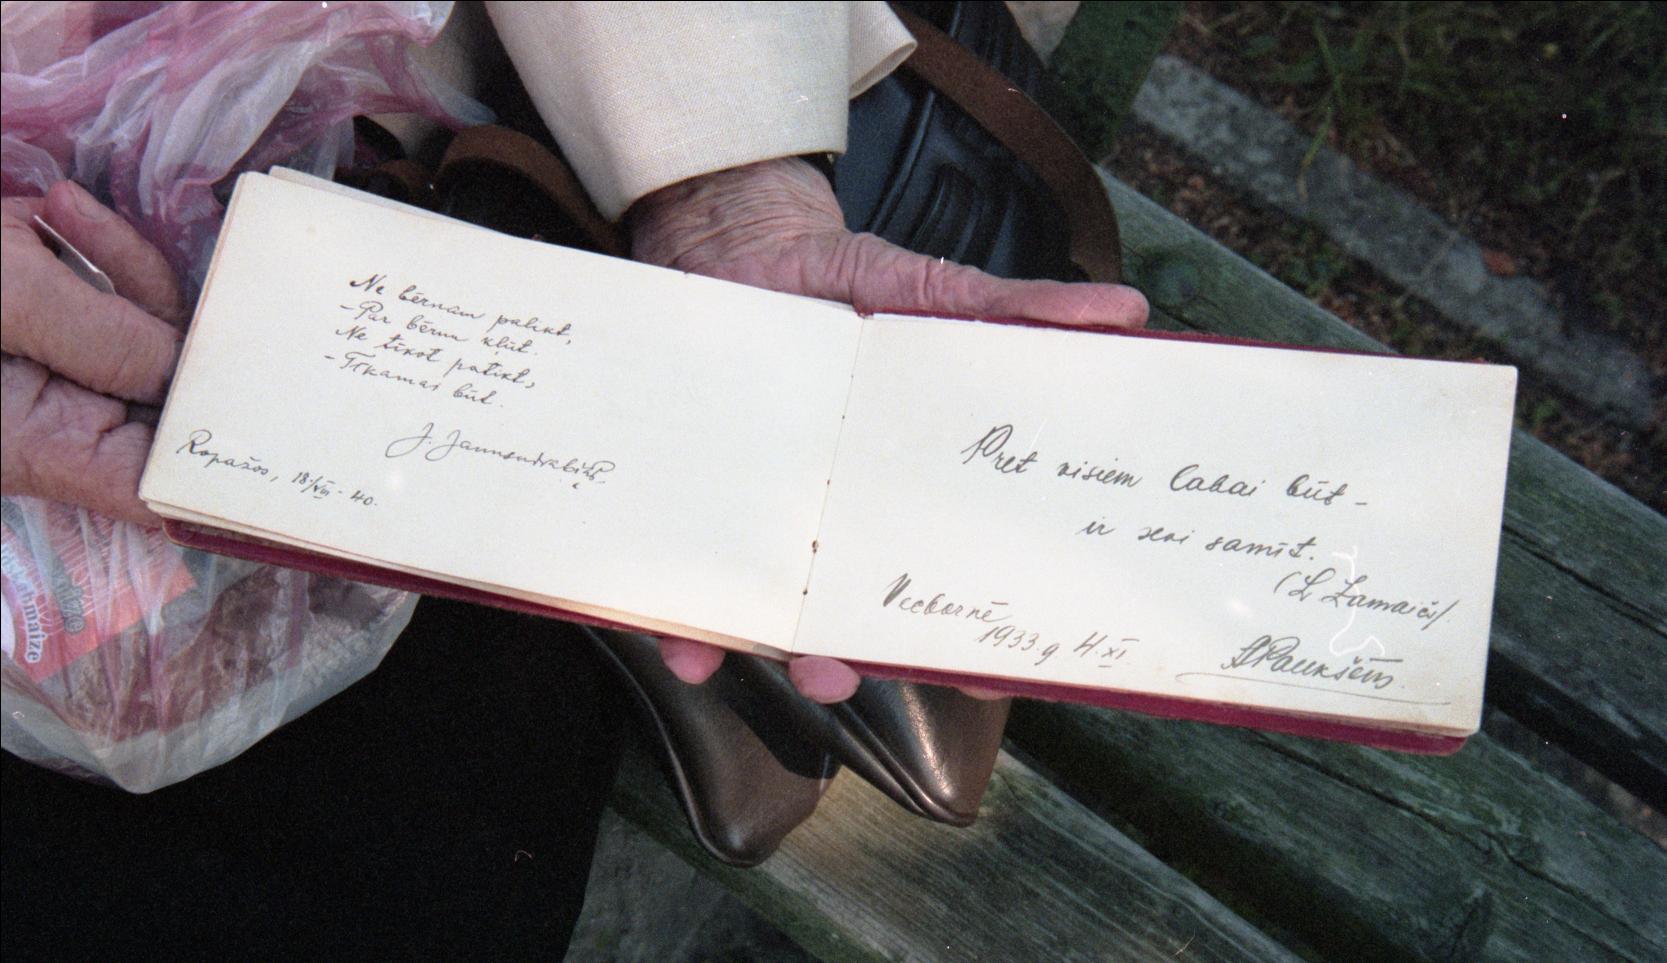 Ne bērnam palikt,
- Par bērnu kļūt.
Ne tīkot patikt,
- Tīkamas būt.
J. Jaunsudrabiņš
Ropažos, 18/VII - 40.
Pret visiem labai būt -
ir sevi samīt.
(L Zamaičs/.
Vecbornē
1933.g 4.XI.
APaukšēns
maize